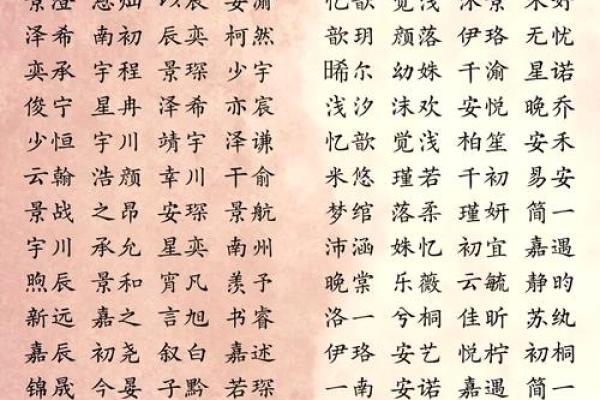 泽希 南初 辰奕 柯然 歆玥 颜落 伊珞 无忧
奕承 宇程 景琛 少宇 晞尔 幼姝 千渝 星诺
俊宁 星冉 泽希 亦宸 浅汐 沫欢 安悦 晚乔
少恒 宇川 靖宇 泽谦 忆歆 觉浅 柏笙 安禾
云翰 浩颜 幸川 干俞 米悠 瑾若 千初 易安
景战 之昂 安琛 景航 梦绾 落柔 瑾妍 简一
宇川 承允 星奕 南州 沛涵 姝忆 初宜 嘉遇
煦辰 景和 宵凡 羡予 晚棠 乐薇 云毓 静昀
新远 嘉之 言旭 书睿 洛一 兮桐 佳昕 苏纨
嘉辰 初尧 叙白 嘉述 伊珞 安艺 悦柠 初桐
锦晟 今晏 子黔 若琛 一南 安诺 嘉遇 简一